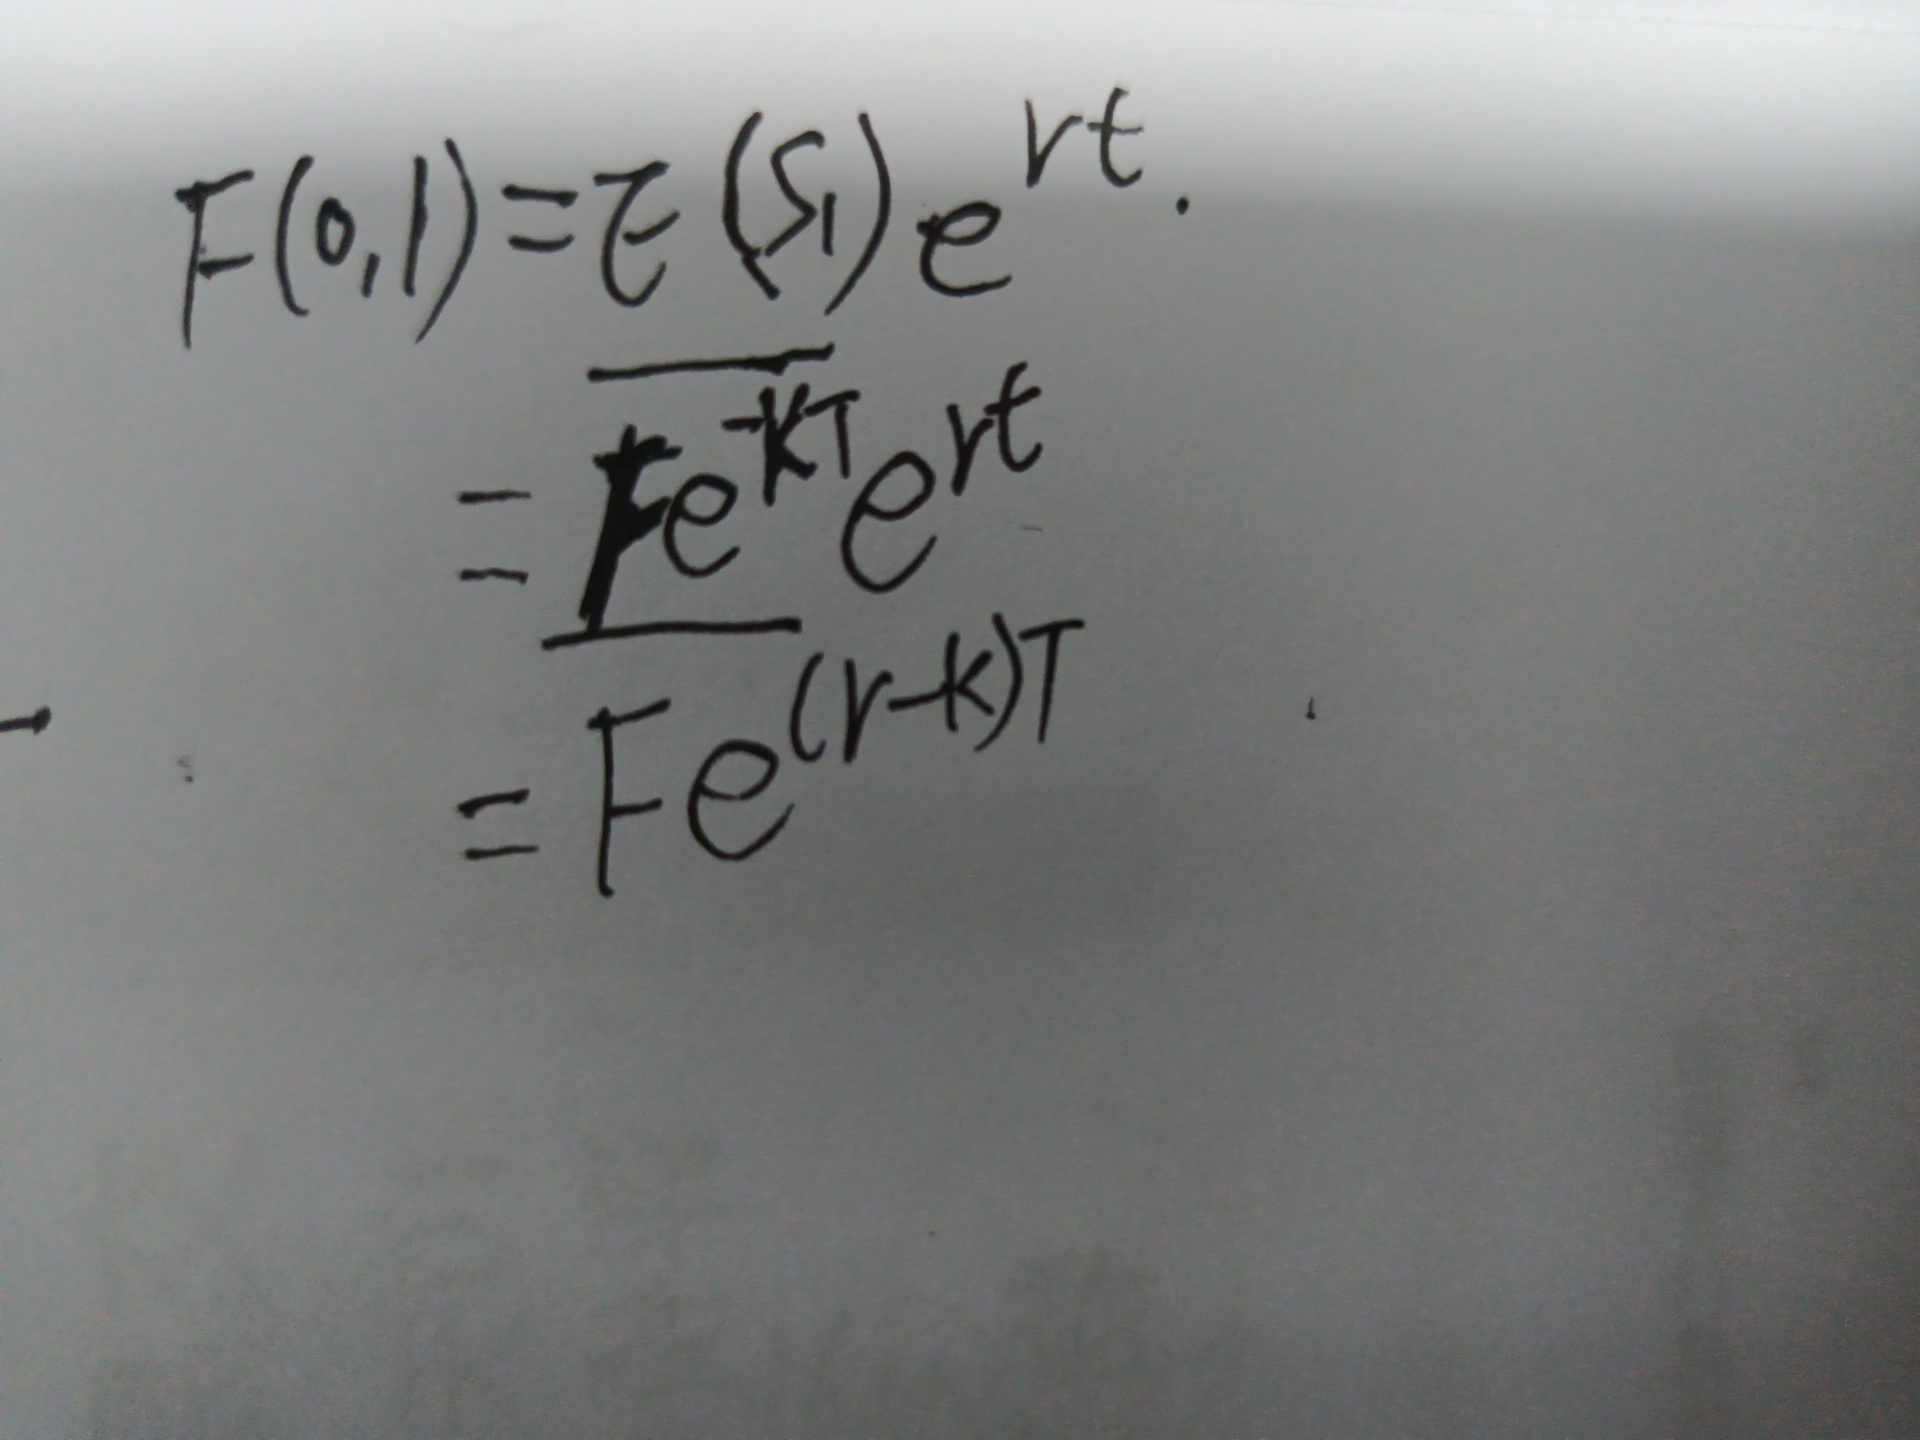 F(0,1)=E(S₁)e^{rt}.
=Fe^{-KT}e^{rt}
=Fe^{(r-K)T}